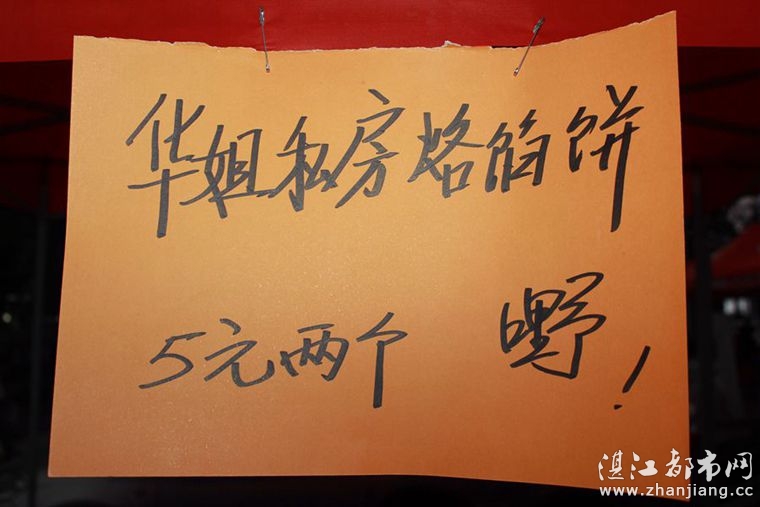 华姐私房烙馅饼
5元两个 嘢!
湛江都市网
www.zhanjiang.cc